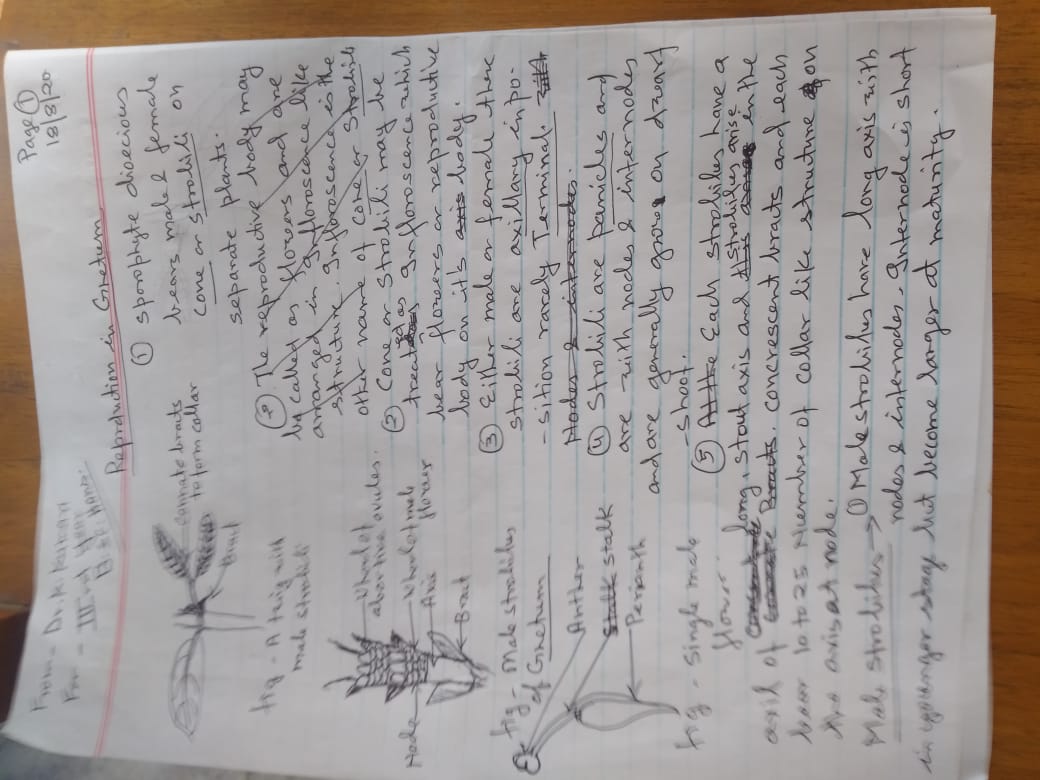 Page ①
18/8/20
From- Dr.
For - IIIrd year
B.Sc. Hons.
Reproduction in Gnetum
① sporophyte dioecious
bears male & female
cone or strobili on
separate plants.
② The reproductive body may
be called as flowers and are
arranged in infloroscence like
structure. Infloroscence is the
other name of cone or strobili
② cone or strobili may be
treated as infloroscence which
bear flowers or reproductive
body on it's axis body.
③ Either male or female the
strobili are axillary in po-
-sition rarely Terminal.
Nodes & internodes.
④ Strobili are panicles and
are with nodes & internodes
and are generally grow on dwarf
-shoot.
⑤ Each strobiles have a
long, stout axis and strobiles arise in the
axil of Bracts. concrescent bracts and each
bear 10 to 25 Number of collar like struture on
the axis at node.
Male strobilus → ① Male strobiles have long axis with
nodes & internodes. Internode is short
in younger stage but become larger at maturity.
connate bracts
to form collar
Bract
fig - A twig with
male strobili
Whorl of
abortive ovules.
Whorl of male
flower
Axis
Bract
Node
fig - Male strobiles
of Gnetum
Anther
Stalk stalk
Perianth
fig - single male
flower